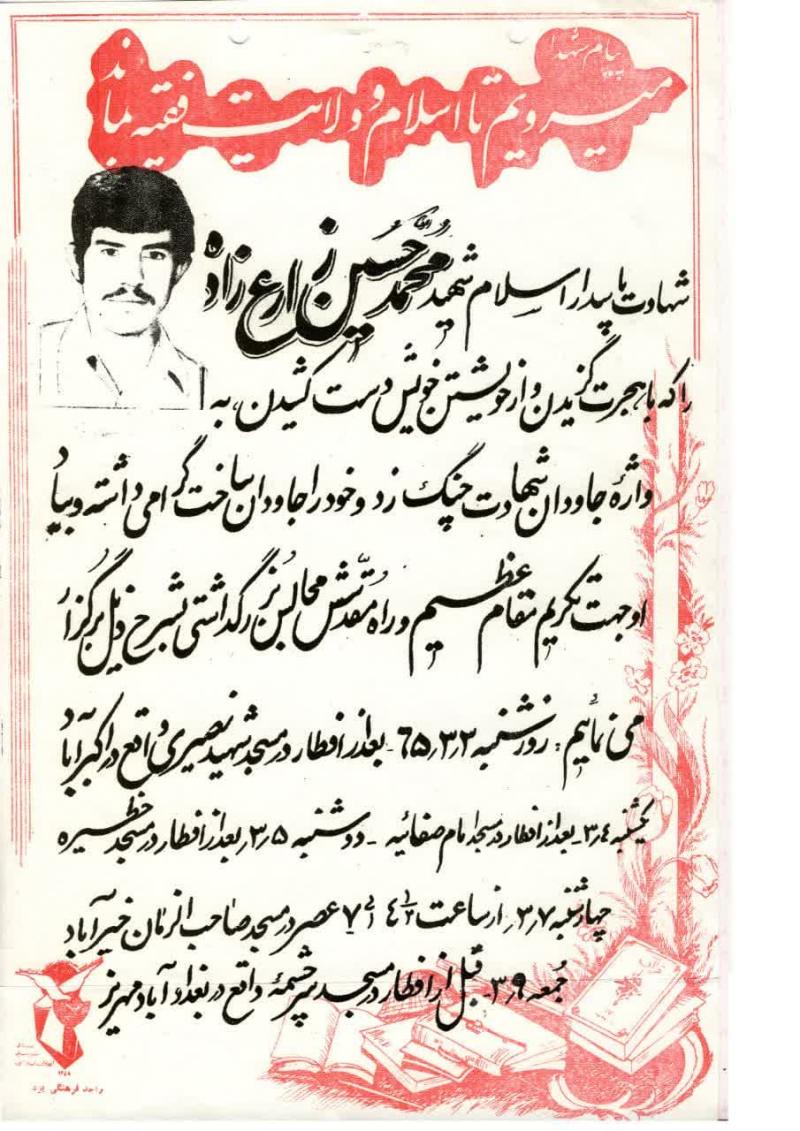 پیام شهدا
میرویم تا اسلام و ولایت فقیه بماند
شهادت پاسدار اسلام شهید محمد حسین زارع زاده
را که با هجرت گزیدن و از خویشتن خویش دست کشیدن، به
واژهٔ جاودان شهادت چنگ زد و خود را جاودان ساخت گرامی داشته و بیاد
او جهت تکریم مقام عظیم و راه مقدّسش مجالس بزرگداشتی بشرح ذیل برگزار
می نمائیم: روز شنبه ۶۵٫۳٫۳- بعد از افطار در مسجد شهید نصیری واقع در اکبر آباد
یکشنبه ۳٫۴- بعد از افطار در مسجد امام صفائیه - دوشنبه ۳٫۵٫ بعد از افطار در مسجد حظیره
چهارشنبه ۳٫۷٫ از ساعت ۴ الی ۷ عصر در مسجد صاحب الزمان خیرآباد
جُمعه ۳٫۹- قبل از افطار در مسجد سرچشمهٔ واقع در بغداد آباد مهریز
۱۳۵۸
واحد فرهنگی یزد